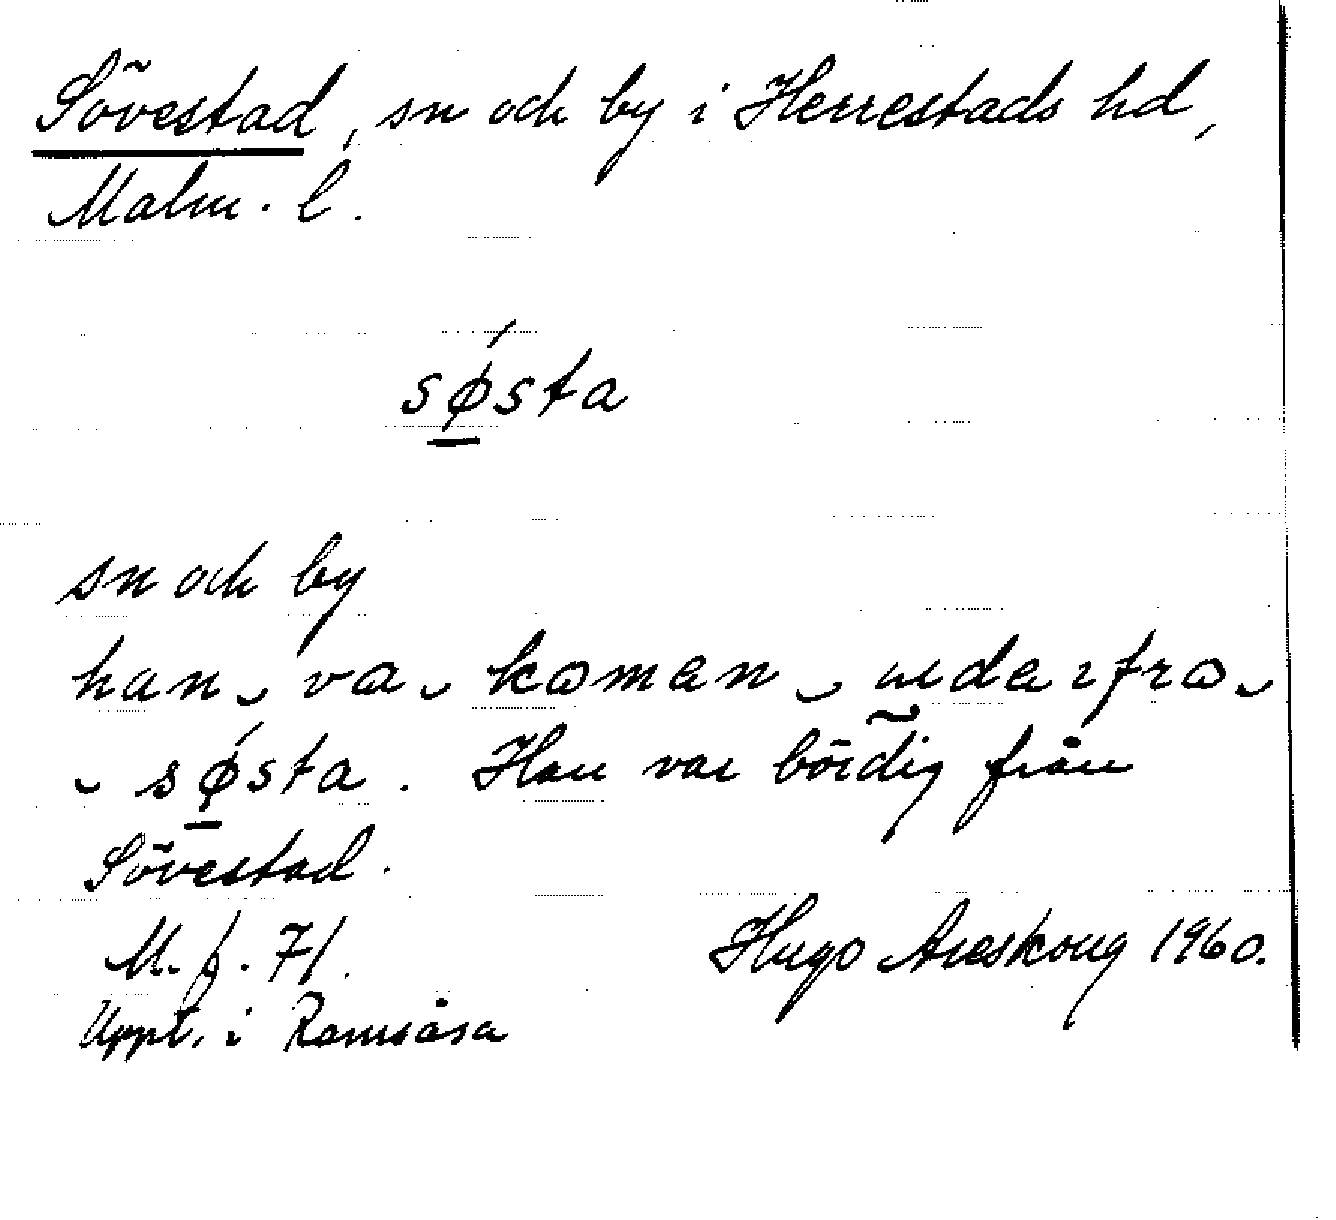 Sövestad, sn och by i Herrestads hd,
Malm. l.
sǿ̠sta
sn och by
han‿va‿koman‿nedarfra‿
‿sǿ̠sta. Han var bördig från
Sövestad.
M. f. 71.
Hugo Areskoug 1960.
Uppt. i Ramsåsa